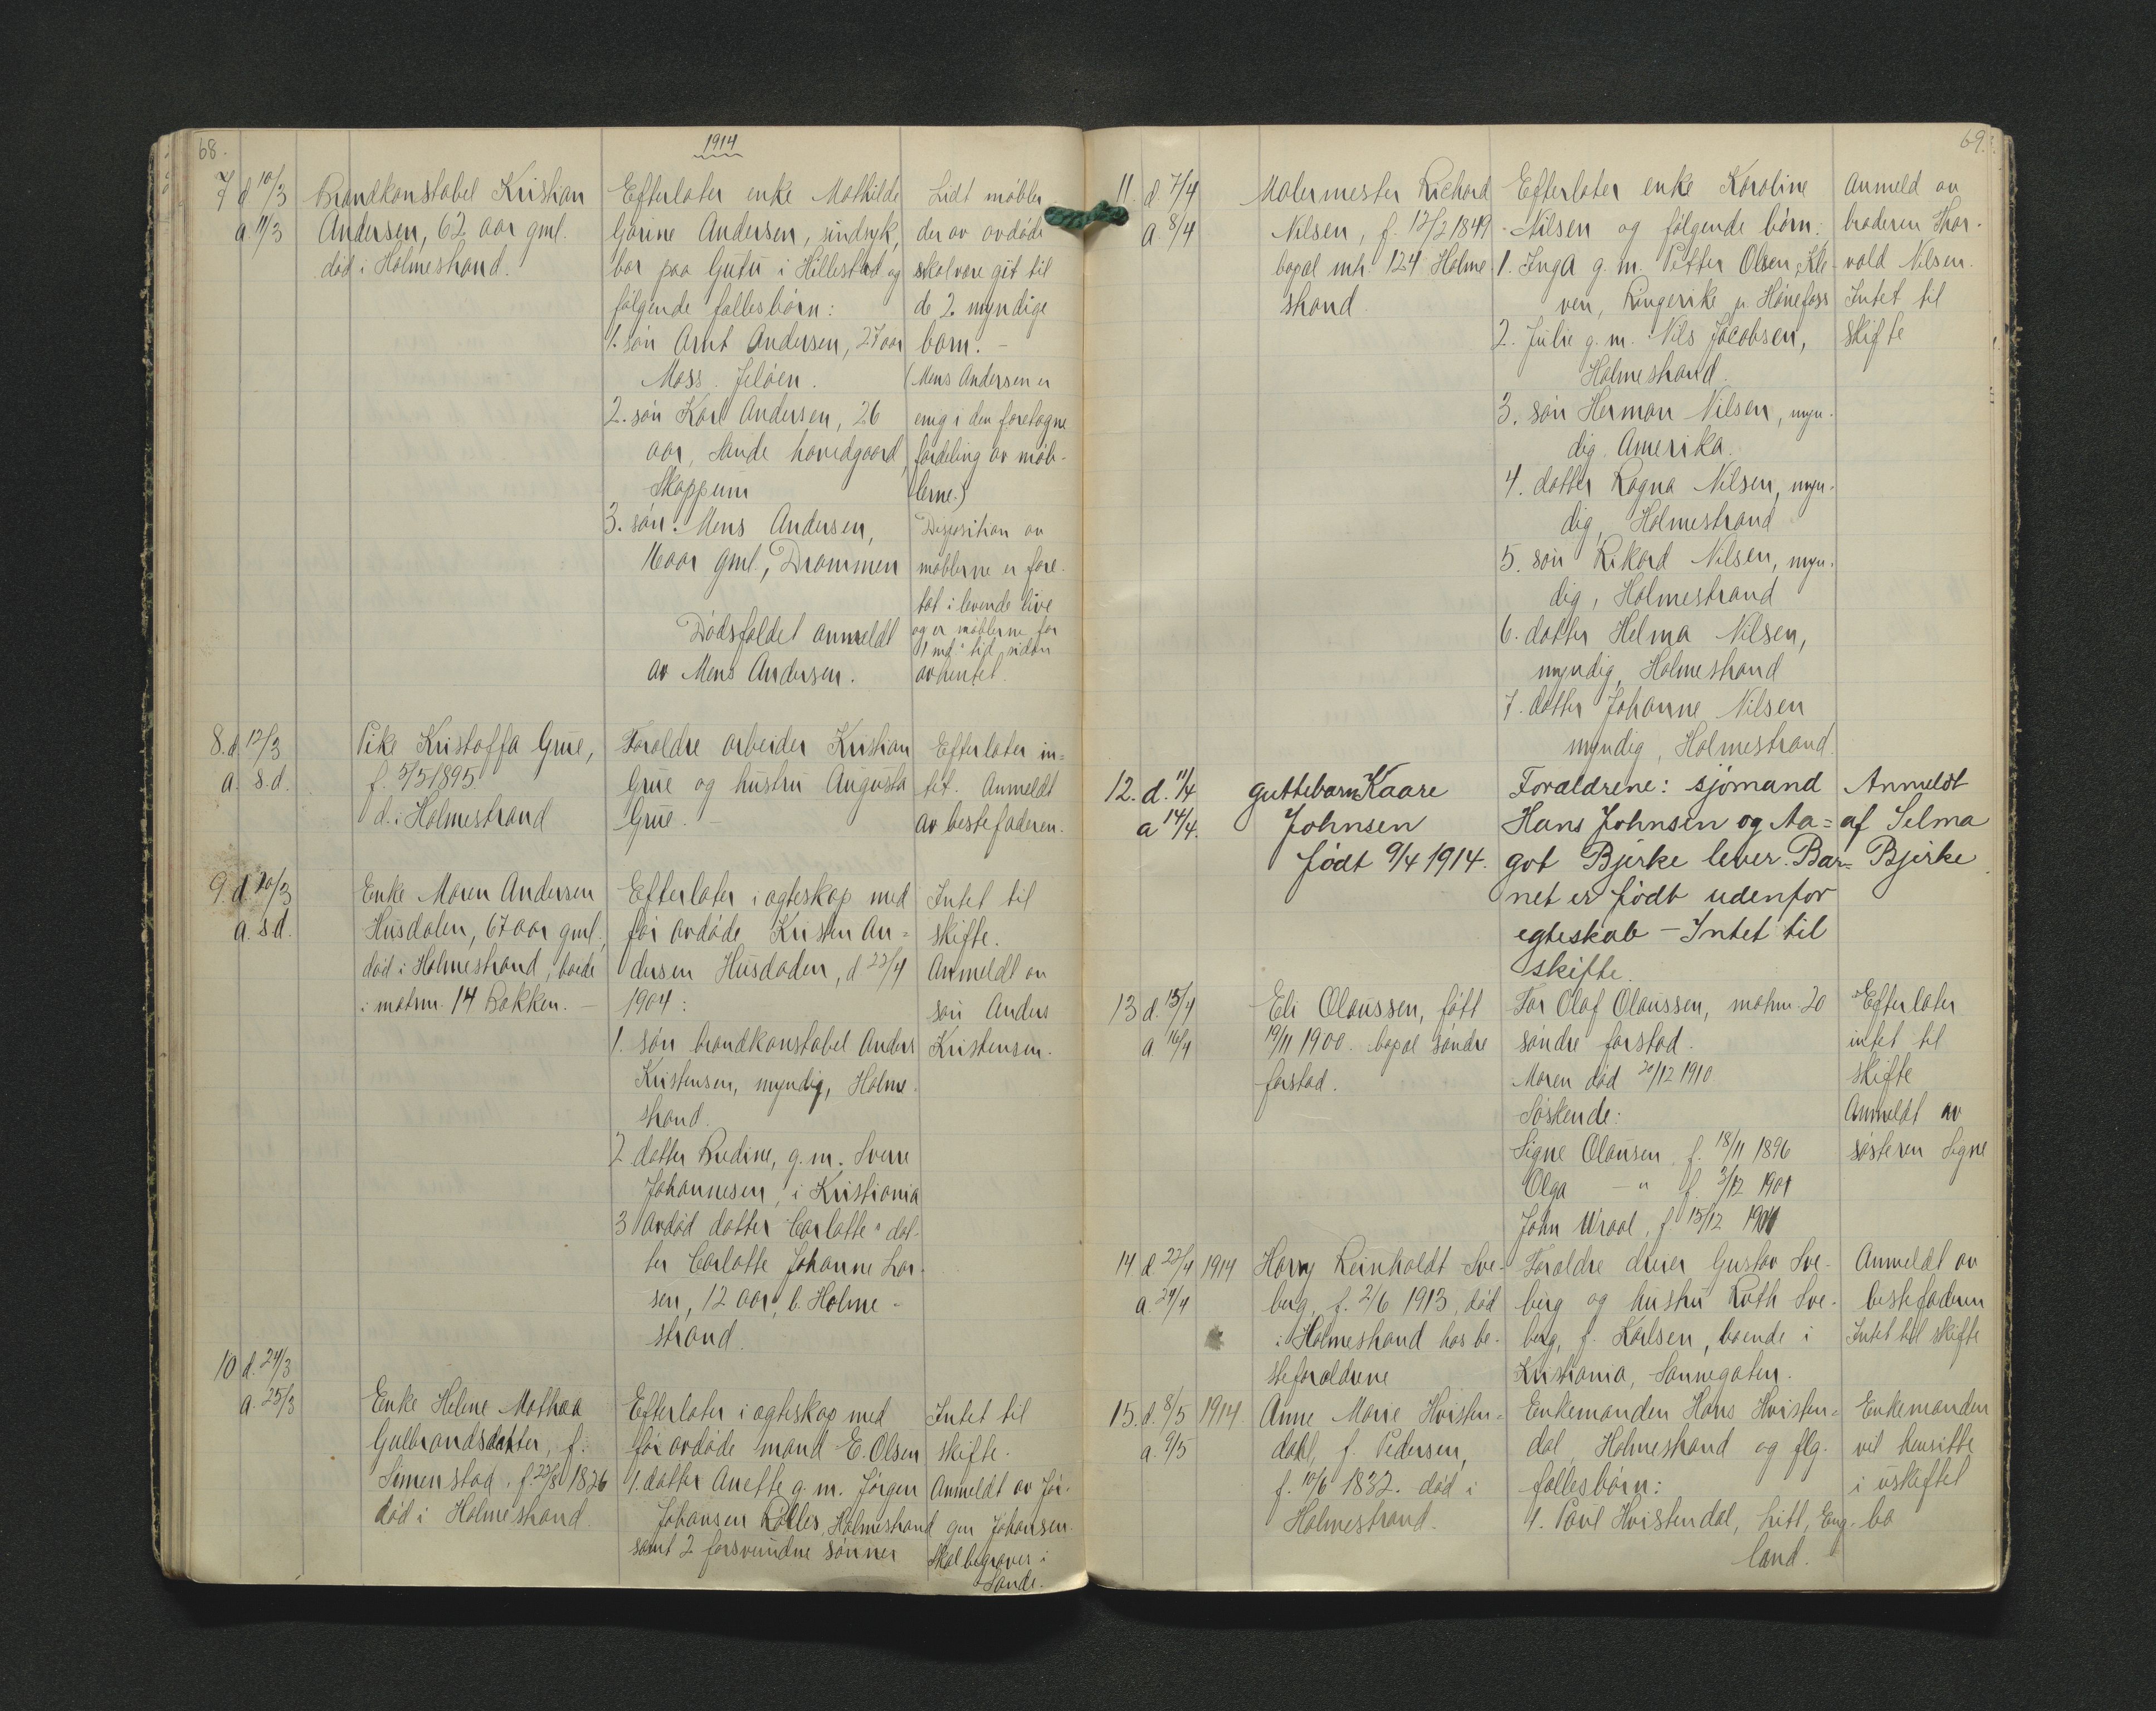 68.
1914
7 d 10/3
a 11/3
Brandkonstabel Kristian
Andersen, 62 aar gml.
död i Holmestrand.
Efterlater enke Mathilde
Gurine Andersen, sindsyk,
bor paa Gutu i Hillestad og
følgende fællesbörn:
1. sön Arnt Andersen, 27 aar
Moss. Jelöen.
2. sön Karl Andersen, 26
aar, Sande hovedgaard,
Skoppum
3. sön. Mens Andersen,
16 aar gml., Drammen
Dödsfaldet anmeldt
av Mens Andersen.
Lidt möbler
der av avdöde
skal være git til
de 2 myndige
barn. –
(Mens Andersen er
enig i den foretagne
fordeling av möb-
lerne.)
Disposition av
möblerne er fore-
tat i levende live
og er möblerne for
1 md's tid siden
avhentet.
8. d 12/3
a. s.d.
Pike Kristoffa Grue,
f. 5/5 1895
d. i Holmestrand
Forældre arbeider Kristian
Grue og hustru Augusta
Grue. –
Efterlater in=
tet. Anmeldt
av bestefaderen.
9. d. 20/3
a. s.d.
Enke Maren Andersen
Husdalen, 67 aar gml.,
död i Holmestrand, boede
i matrnr. 14 Bakken. –
Efterlater i ægteskap med
för avdöde Kristen An=
dersen Husdalen, d 22/4
1904:
1. sön brandkonstabel Anders
Kristensen, myndig, Holme-
strand.
2 datter Bredine, g. m. Sverre
Johannesen, i Kristiania
3 Avdöd datter Carlotte's dat-
ter Carlotte Johanne Lar-
sen, 12 aar, b. Holme-
strand.
Intet til
skifte.
Anmeldt av
sön Anders
Kristensen.
10 d. 24/3
a. 25/3
Enke Helene Mathea
Gulbrandsdatter, f.
Simenstad. f. 22/8 1826
död i Holmestrand
Efterlater i ægteskap med
för avdöde mand E. Olsen
1. datter Anette g. m. Jörgen
Johansen Rolles, Holmestrand
samt 2 forsvundne sönner
Intet til
skifte.
Anmeldt av Jör-
gen Johansen.
Skal begraves i
Sande.
69.
11. d 7/4
a. 8/4
Malermester Richard
Nilsen, f. 12/2 1849
bopæl mtr. 124 Holme
strand
Efterlater enke Karoline
Nilsen og fölgende börn:
1. Inga g. m. Petter Olsen, Kle-
ven, Ringerike pr Hönefoss
2. Julie g. m. Nils Jacobsen,
Holmestrand.
3. sön Herman Nilsen, myn-
dig. Amerika.
4. datter Ragna Nilsen, myn-
dig, Holmestrand
5. sön Rikard Nilsen, myn-
dig, Holmestrand
6. datter Helma Nilsen,
myndig, Holmestrand
7. datter Johanne Nilsen
myndig, Holmestrand.
Anmeld av
broderen Thor-
vald Nilsen.
Intet til
skifte
12. d. 11/4
a 14/4.
guttebarn Kaare
Johnsen
født 9/4 1914.
Forældrene: sjömand
Hans Johnsen og Aa=
got Bjerke lever. Bar=
net er født udenfor
egteskab – Intet til
skifte.
Anmeldt
af Selma
Bjerke
13 d. 15/4
a. 16/4
Eli Olaussen, föft
19/11 1900. bopæl söndre
forstad.
Far Olaf Olaussen, matrnr 20
söndre forstad.
Moren död 20/12 1910
Söskende:
Signe Olausen, f. 18/11 1896
Olga – " f. 3/12 1901
John Wraal, f 15/12 1904
Efterlater
intet til
skifte
Anmeldt av
sösteren Signe
14 d. 22/4 1914
a. 24/4
Harry Reinholdt Sve-
berg, f. 2/6 1913, död
i Holmestrand hos be-
steforældrene
Forældre dreier Gustav Sve-
berg og hustru Ruth Sve-
berg, f. Karlsen, boende i
Kristiania, Sannegaten.
Anmeldt av
bestefaderen
Intet til skifte
15. d. 8/5 1914
a. 9/5
Anne Marie Hvisten=
dahl, f. Pedersen,
f. 10/6 1832. död i
Holmestrand.
Enkemanden Hans Hvisten=
dal, Holmestrand og flg.
fællesbörn:
1. Paul Hvistendal, Litt, Eng-
land.
Enkemanden
vil hensitte
i uskiftet
bo